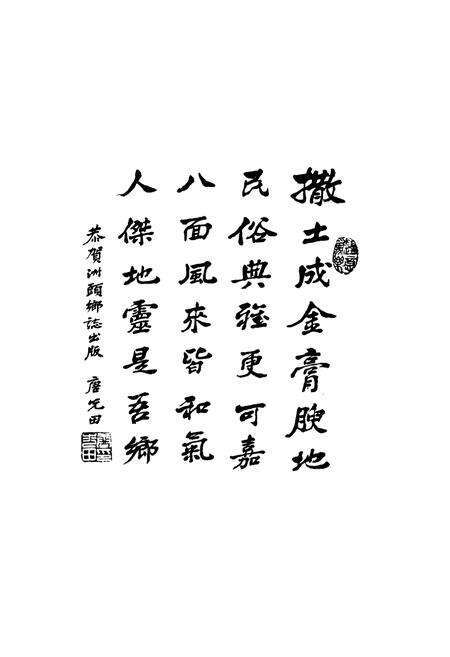 撒土成金膏腴地
民俗典雅更可嘉
八面風來皆和氣
人傑地靈是吾鄉
恭賀洲頭鄉誌出版 唐先田